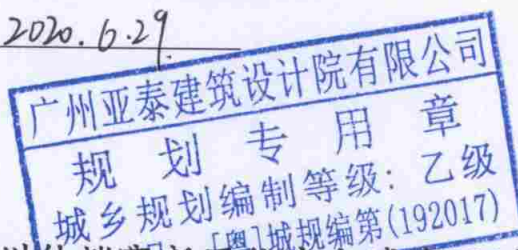 2020.6.29
广州亚泰建筑设计院有限公司
规划专用章
城乡规划编制等级：乙级
[粤]城规编第(192017)